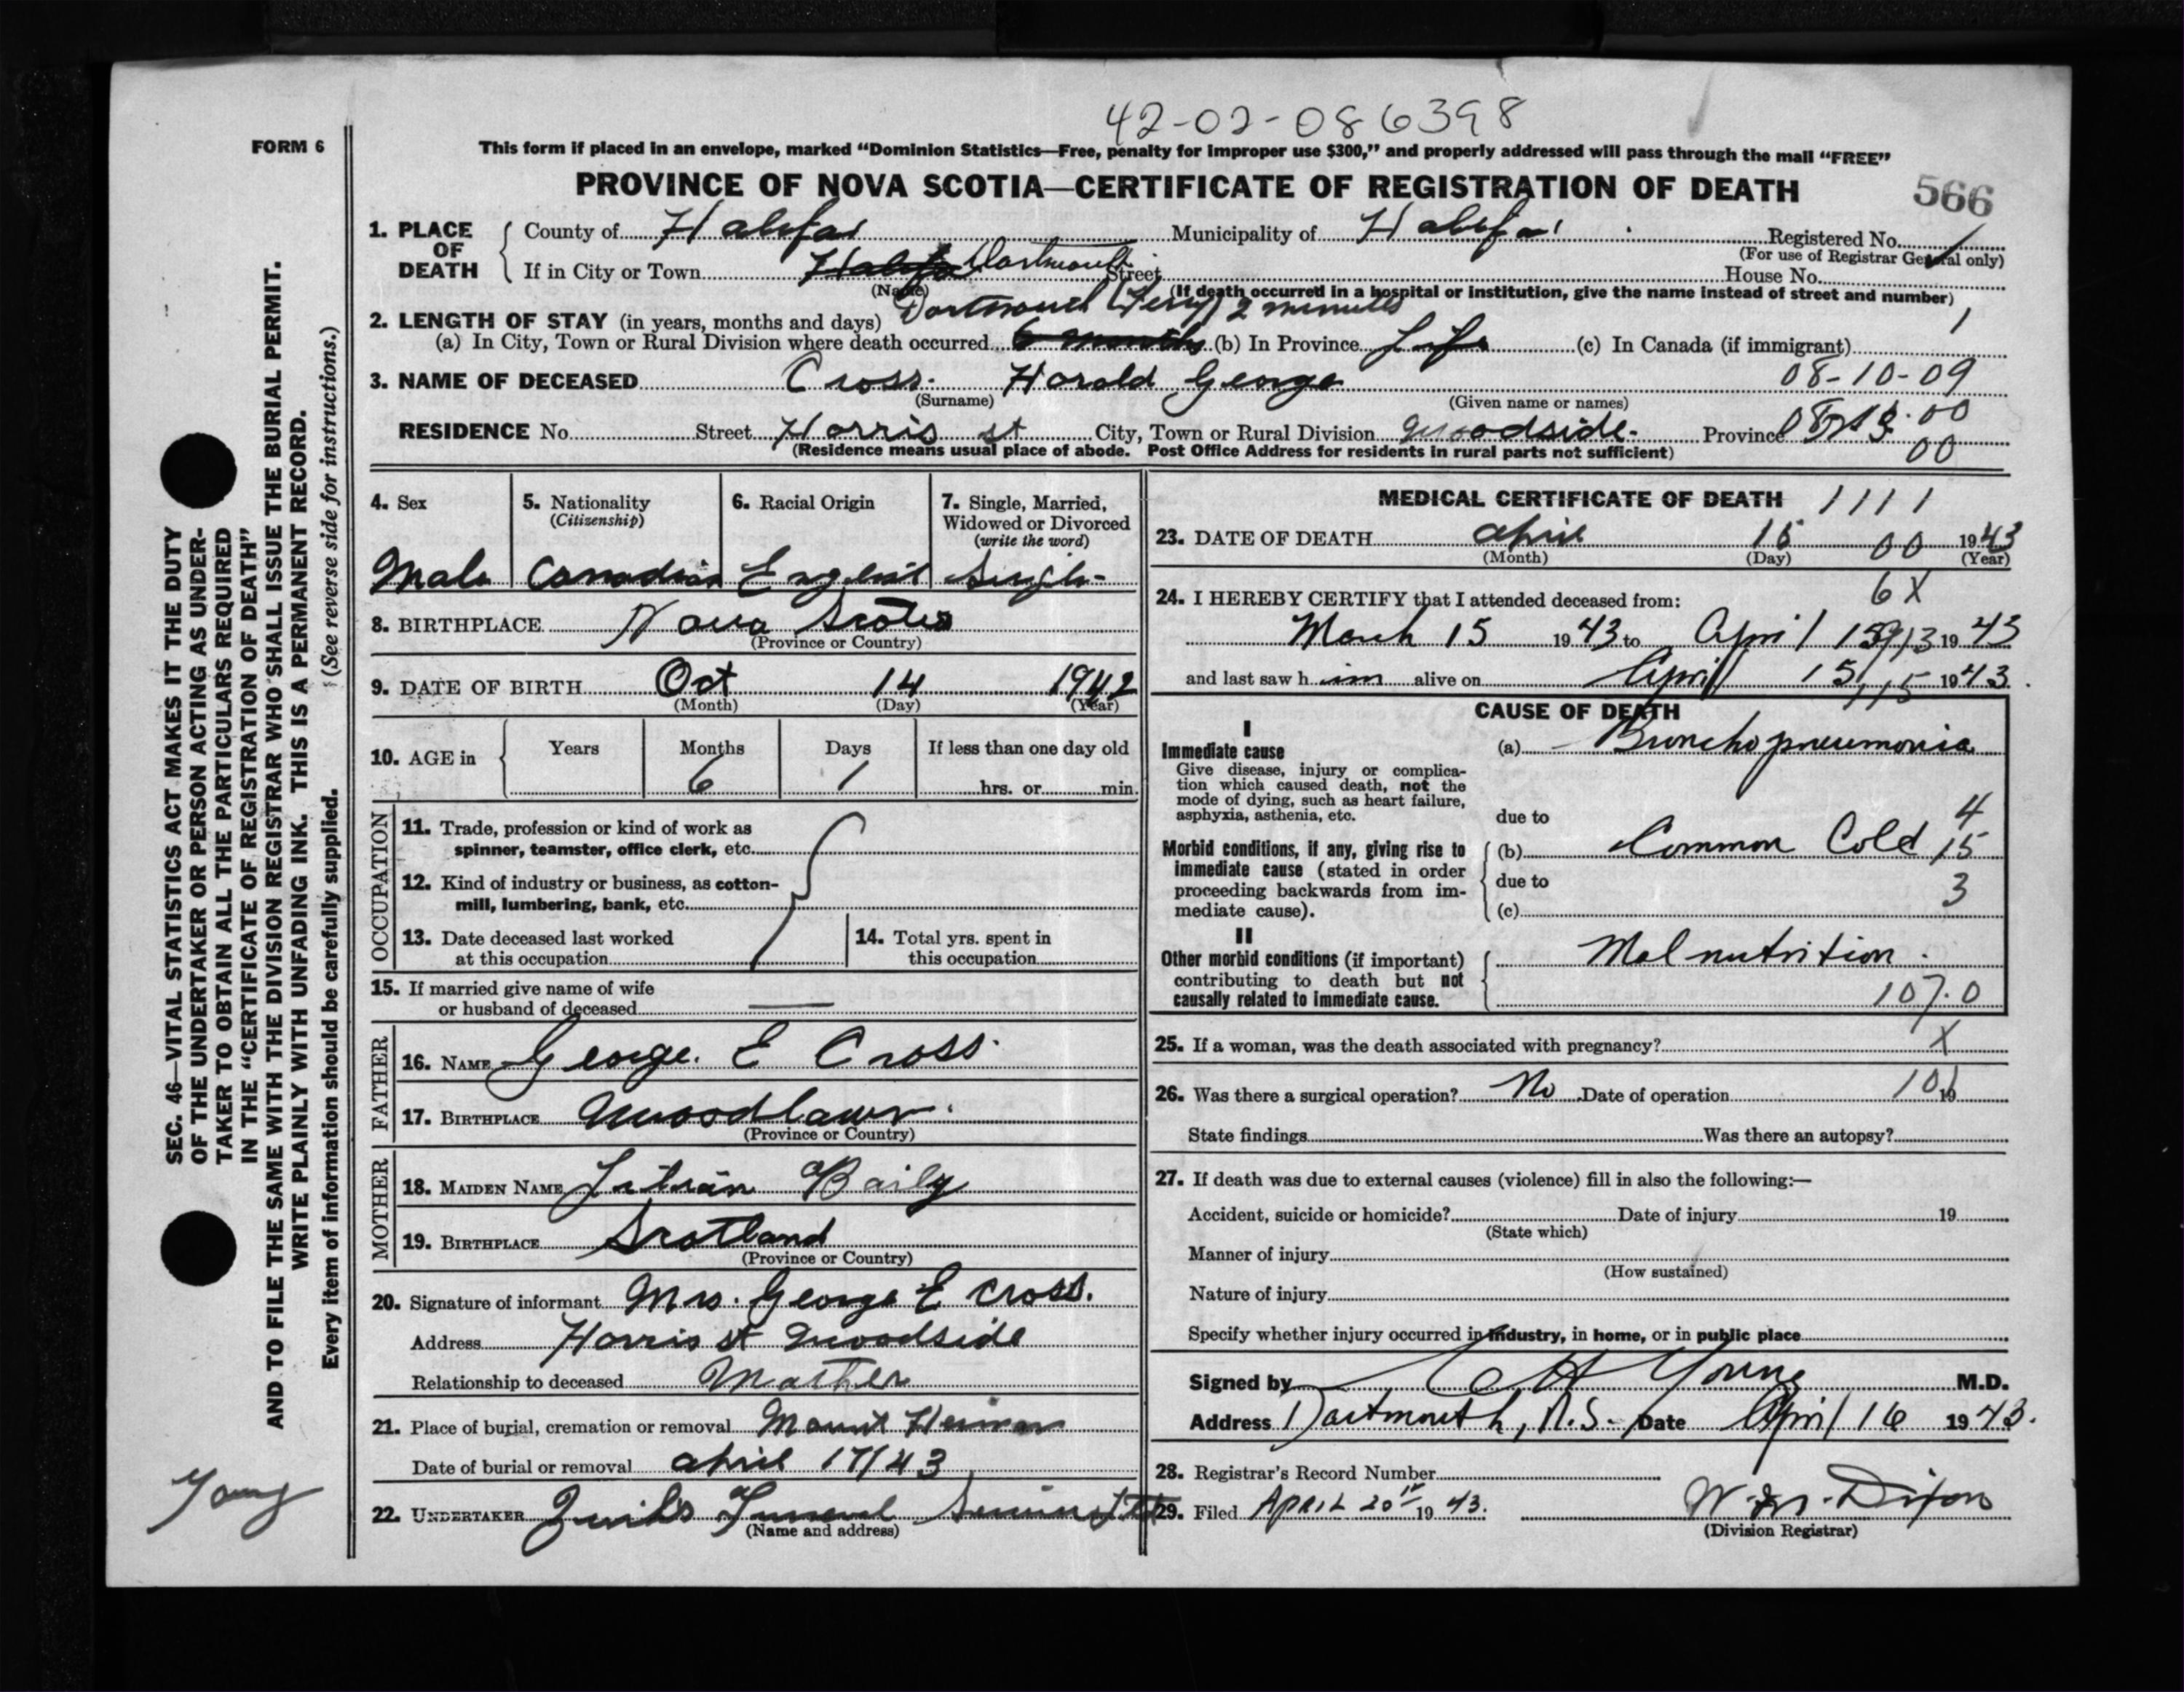 42-02-086398
FORM 6
This form if placed in an envelope, marked “Dominion Statistics—Free, penalty for improper use $300,” and properly addressed will pass through the mail “FREE”
PROVINCE OF NOVA SCOTIA—CERTIFICATE OF REGISTRATION OF DEATH
566
1. PLACE OF DEATH County of Halifax Municipality of Halifax Registered No.
(For use of Registrar General only)
If in City or Town Halifax Dartmouth Street House No.
(Name) (If death occurred in a hospital or institution, give the name instead of street and number)
Dartmouth Ferry 2 minutes
2. LENGTH OF STAY (in years, months and days) 1
(a) In City, Town or Rural Division where death occurred 6 months (b) In Province Life (c) In Canada (if immigrant)
3. NAME OF DECEASED Cross. Harold George 08-10-09
(Surname) (Given name or names)
RESIDENCE No. Street Harris st City, Town or Rural Division Woodside. Province
00
(Residence means usual place of abode. Post Office Address for residents in rural parts not sufficient)
4. Sex
Male
5. Nationality
(Citizenship)
Canadian
6. Racial Origin
English
7. Single, Married, Widowed or Divorced
(write the word)
Single
8. BIRTHPLACE Nova Scotia
(Province or Country)
9. DATE OF BIRTH Oct 14 1942
(Month) (Day) (Year)
10. AGE in Years Months Days If less than one day old
6 1 hrs. or min.
OCCUPATION
11. Trade, profession or kind of work as
spinner, teamster, office clerk, etc.
12. Kind of industry or business, as cotton-
mill, lumbering, bank, etc.
13. Date deceased last worked
at this occupation
14. Total yrs. spent in
this occupation
15. If married give name of wife
or husband of deceased —
FATHER
16. NAME George. E Cross.
17. BIRTHPLACE Woodlawn.
(Province or Country)
MOTHER
18. MAIDEN NAME Baily
19. BIRTHPLACE Scotland
(Province or Country)
20. Signature of informant Mrs. George E Cross.
Address Harris st Woodside
Relationship to deceased Mother
21. Place of burial, cremation or removal Mount Herman
Date of burial or removal april 17/43
22. UNDERTAKER Funeral Service Ltd
(Name and address)
MEDICAL CERTIFICATE OF DEATH 1111
23. DATE OF DEATH april 15 00 1943
(Month) (Day) (Year)
6X
24. I HEREBY CERTIFY that I attended deceased from:
March 15 1943 to April 15 1943
and last saw him alive on April 15 1943.
CAUSE OF DEATH
I
Immediate cause (a) Bronchopneumonia
Give disease, injury or complica-
tion which caused death, not the
mode of dying, such as heart failure,
asphyxia, asthenia, etc.
due to 4
Morbid conditions, if any, giving rise to
immediate cause (stated in order
proceeding backwards from im-
mediate cause).
(b) Common Cold 15
due to 3
(c)
II
Other morbid conditions (if important)
contributing to death but not
causally related to immediate cause.
Malnutrition.
107.0
25. If a woman, was the death associated with pregnancy? X
26. Was there a surgical operation? No Date of operation 19
State findings Was there an autopsy?
27. If death was due to external causes (violence) fill in also the following:—
Accident, suicide or homicide? Date of injury 19
(State which)
Manner of injury
(How sustained)
Nature of injury
Specify whether injury occurred in industry, in home, or in public place
Signed by C H Young M.D.
Address Dartmouth, N.S. Date April 16 1943.
28. Registrar's Record Number
29. Filed APRIL 20th 1943. Dixon
(Division Registrar)
SEC. 46—VITAL STATISTICS ACT MAKES IT THE DUTY
OF THE UNDERTAKER OR PERSON ACTING AS UNDER-
TAKER TO OBTAIN ALL THE PARTICULARS REQUIRED
IN THE “CERTIFICATE OF REGISTRATION OF DEATH”
AND TO FILE THE SAME WITH THE DIVISION REGISTRAR WHO SHALL ISSUE THE BURIAL PERMIT.
WRITE PLAINLY WITH UNFADING INK. THIS IS A PERMANENT RECORD.
Every item of information should be carefully supplied. (See reverse side for instructions.)
Young